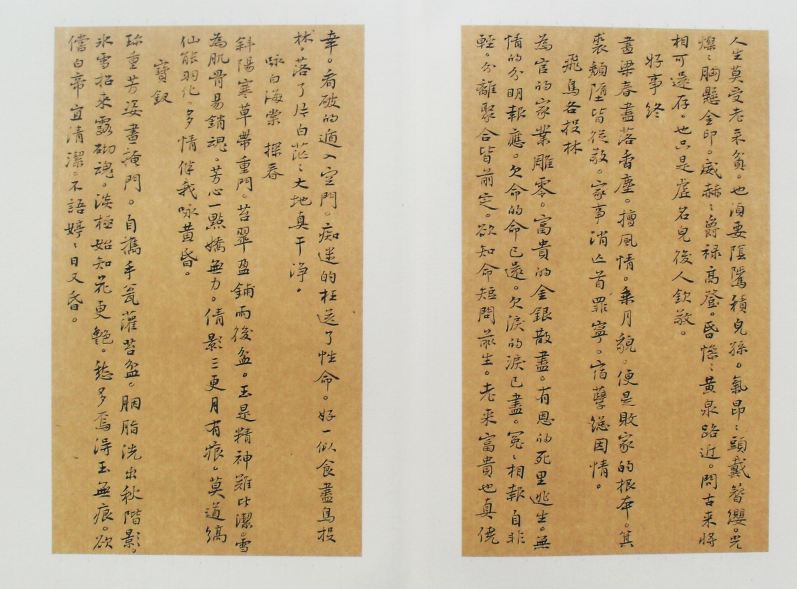 人生莫受老来貧。也須要陰騭積兒孫。氣昂々頭戴簪纓。光
燦々胸懸金印。威赫々爵禄高登。昏惨々黄泉路近。問古来將
相可還存。也只是虚名兒後人欽敬。
好事終
畫梁春盡落香塵。擅風情。秉月貌。便是敗家的根本。箕
裘頽墮皆從敬。家事消亡首罪寧。宿孽總因情。
飛鳥各投林
為官的家業雕零。富貴的金銀散盡。有恩的死里逃生。無
情的分明報應。欠命的命已還。欠淚的淚已盡。冤々相報自非
輕。分離聚合皆前定。欲知命短問前生。老来富貴也真僥
幸。看破的遁入空門。痴迷的枉送了性命。好一似食盡鳥投
林。落了片白茫々大地真干净。
咏白海棠 探春
斜陽寒草帶重門。苔翠盈鋪雨後盆。玉是精神難比潔。雪
為肌骨易銷魂。芳心一點嬌無力。倩影三更月有痕。莫道縞
仙能羽化。多情伴我咏黄昏。
寶釵
珍重芳姿晝掩門。自攜手瓮灌苔盆。胭脂洗出秋階影。
冰雪招来露砌魂。淡極始知花更艷。愁多焉得玉無痕。欲
償白帝宜清潔。不語婷々日又昏。